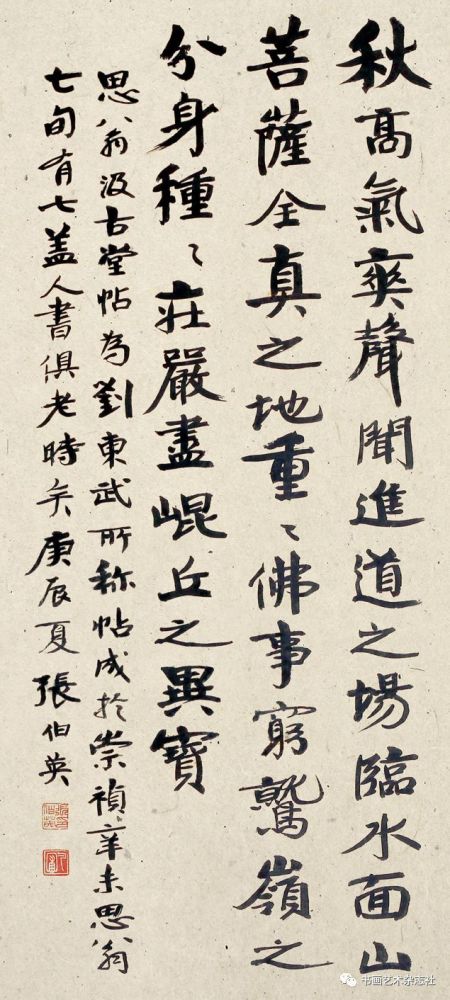 秋高氣爽聲聞進道之場臨水面山
菩薩全真之地重〻佛事窮鷲嶺之
分身種〻莊嚴盡崐丘之異寶
思翁汲古堂帖為劉東武所称帖成於崇禎辛未思翁
七旬有七盖人書俱老時矣庚辰夏張伯英
书画艺术杂志社